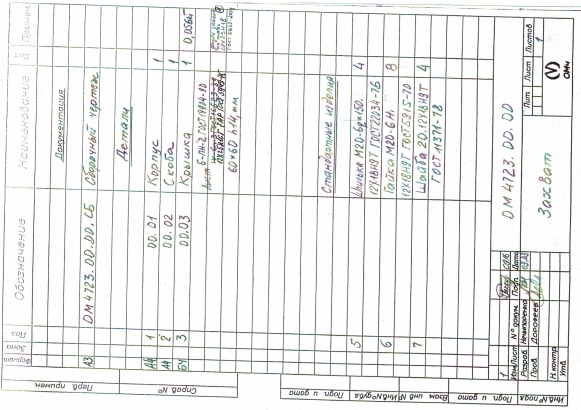 Формат Зона Поз. Обозначение Наименование Примечан.
Документация
А3 DM 4723. 00. 00. СБ Сборочный чертеж
Детали
А4 1 00. 01 Корпус 1
А4 2 00. 02 Скоба 1
БЧ 3 00.03 Крышка 1 0,056кг
Лист Б-ПН-2 ГОСТ 19904-90
60х60 h14, мм
Стандартные изделия
5 Шпилька М20-6gх150. 4
12Х18Н9Т ГОСТ 22034-76
6 Гайка М20-6Н. 8
12Х18Н9Т ГОСТ 5915-70
7 Шайба 20.12Х18Н9Т 4
ГОСТ 11371-78
Перв. примен.
Справ. №
Подп. и дата
Инв. № дубл.
Взам. инв. №
Подп. и дата
Инв. № подл.
1
Изм Лист № докум. Подп. Дата
Разраб. Нечипоренко
Пров. Дорофеев
Н.контр.
Утв.
DM 4723. 00. 00
Захват
Лит. Лист Листов
1